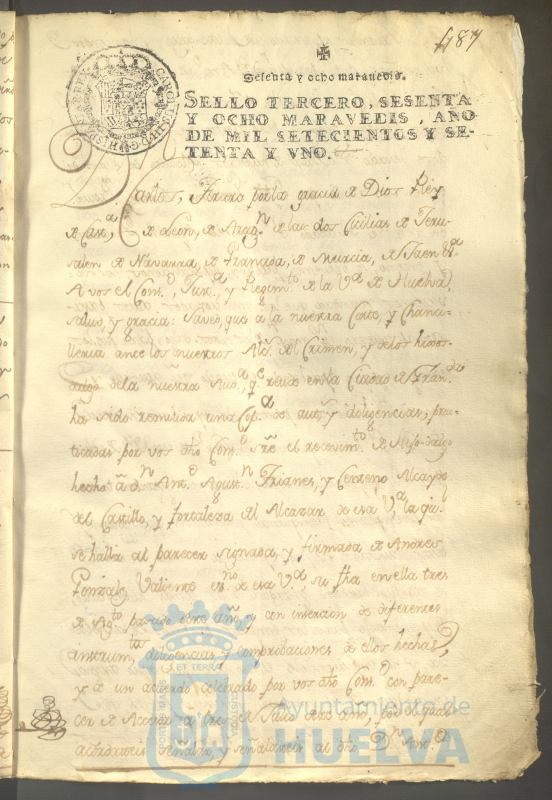 487
Sesenta y ocho maravedis.
SELLO TERCERO, SESENTA
Y OCHO MARAVEDIS, AÑO
DE MIL SETECIENTOS Y SE-
TENTA Y VNO.
Dn Carlos, Tercero por la gracia de Dios Rey
de Casta, de Leon, de Aragn de las dos Cicilias de Jeru-
salen de Navarra, de Granada, de Murcia, de Jaen &a
A vos el Consо, Justa, y Regimto de la Va de Huelva,
Salud, y gracia: Saved, que a la nuestra Corte, y Chanci-
lleria ante los nuestros Alcs del Crimen, y de los hijos-
dalgo de la nuestra Auda qe reside en la Ciudad de Granda
ha sido remitida una Copa de autos y diligencias, prac-
ticadas por vos dho Conso sre el recevimto de hijo-dalgo
hecho á Dn Anto Agustn Trianes, y Centeno Alcayde
del Castillo, y fortaleza del Alcazar de esa Va la qual
se halla al parecer signada, y firmada de Andres
Gonzalz Valiente esno de esa Va, su fha en ella tres
de Agto pasado de este año, y con insercion de diferentes
instrumtos, diligencias y comprobaciones de ellos hechas,
y de un acuerdo celebrado por vos dho Conso con pare-
cer de Asesor de Julio de este año, por el qual
acordasteis señalar, y señalasteis al dho Dn Anto
PORTUS MARIS ET TERRAE CUSTODIA
Ayuntamiento de
HUELVA